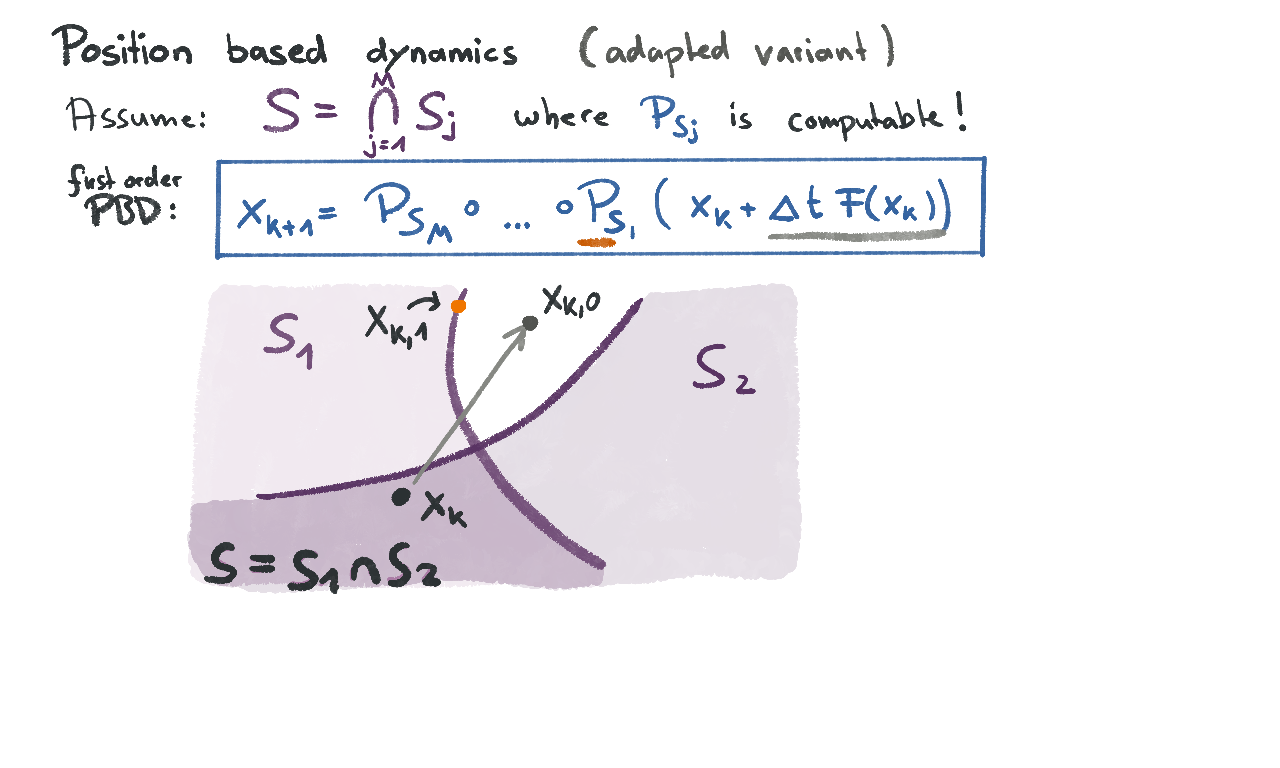 Position based dynamics (adapted variant)
Assume: S = ⋂_{j=1}^{M} S_j where P_{S_j} is computable!
first order
PBD: x_{k+1} = P_{S_M} ∘ ... ∘ P_{S_1} ( x_k + Δt F(x_k))
x_{k,0}
x_{k,1}
S_1
S_2
x_k
S = S_1 ∩ S_2